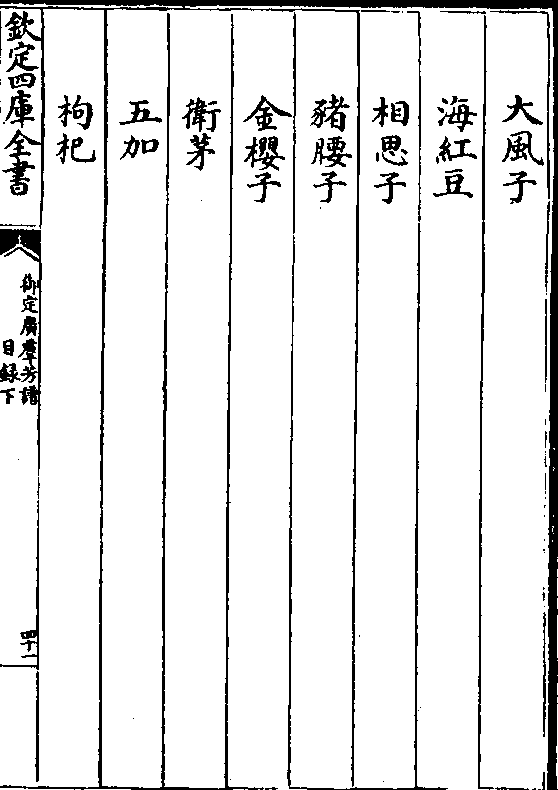 大風子
海紅豆
相思子
豬腰子
金櫻子
衛茅
五加
枸杞
欽定四庫全書
御定廣羣芳譜
目録下
四十一